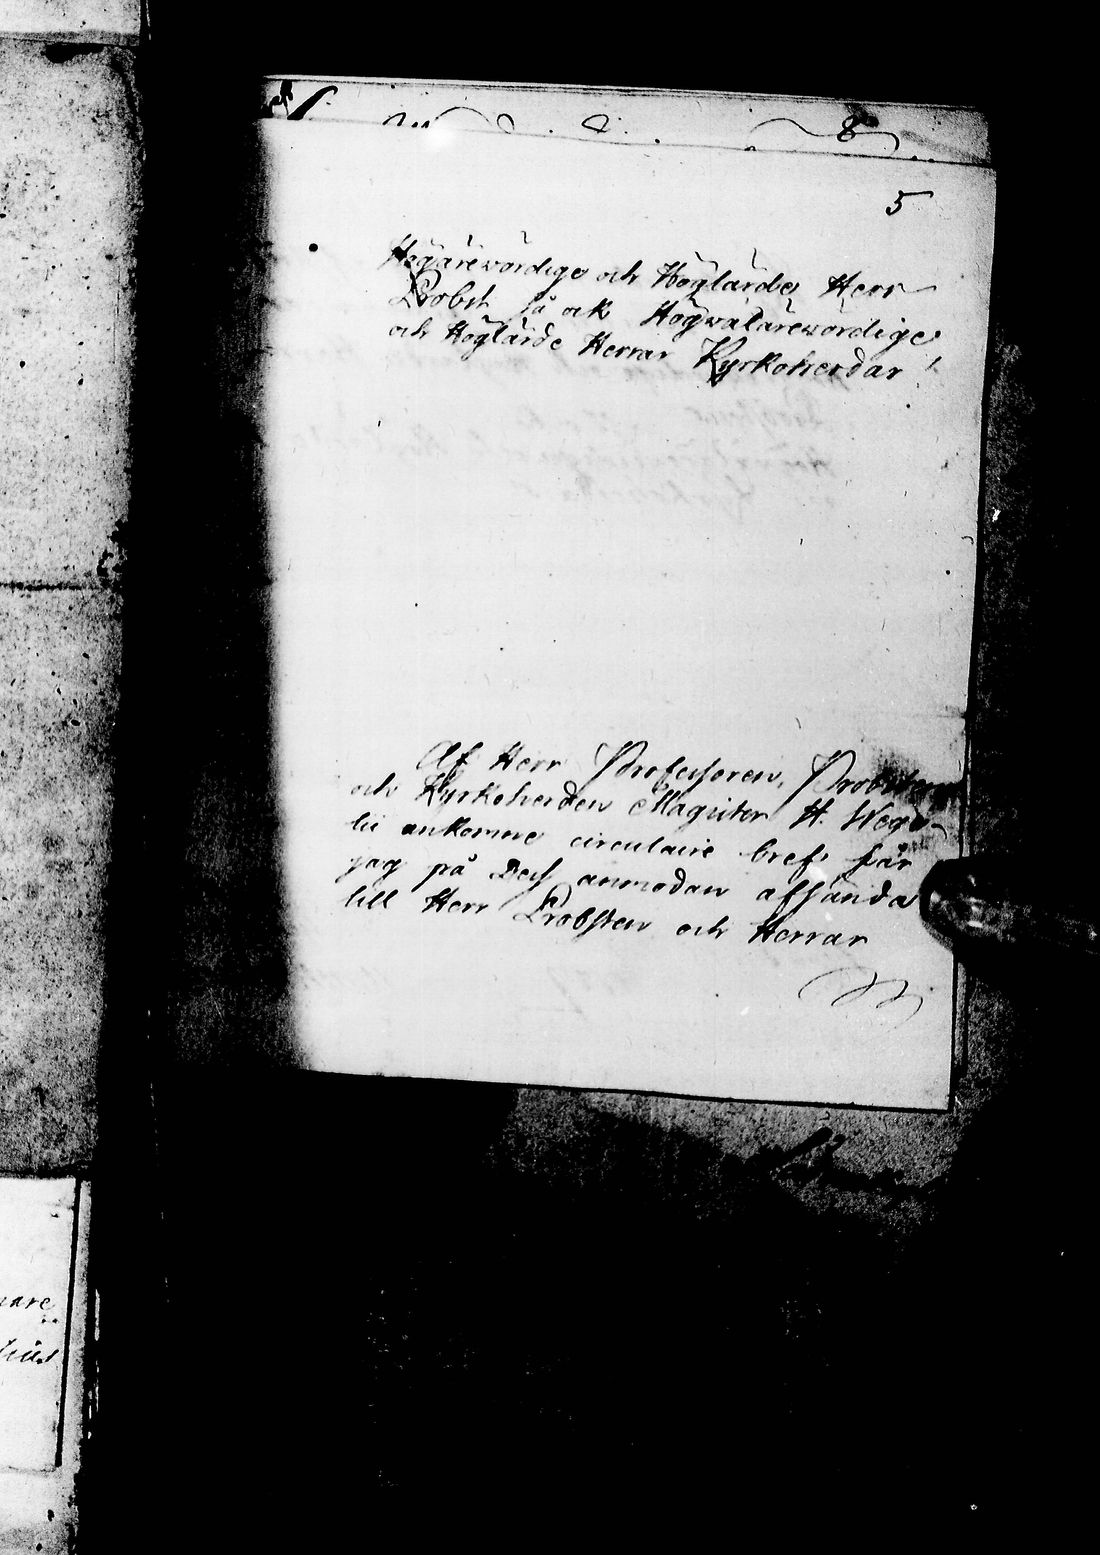 8
5
Högärevördige och Höglärde Herr
Probst så ock Högvälärevördige
och Höglärde Herrar Kyrkoherdar!
Af Herr Professoren, Probsten
och Kyrkoherden Magister H. Wege-
lii ankomne circulaire bref får
jag på Dess anmodan affsända
till Herr Probsten och Herrar